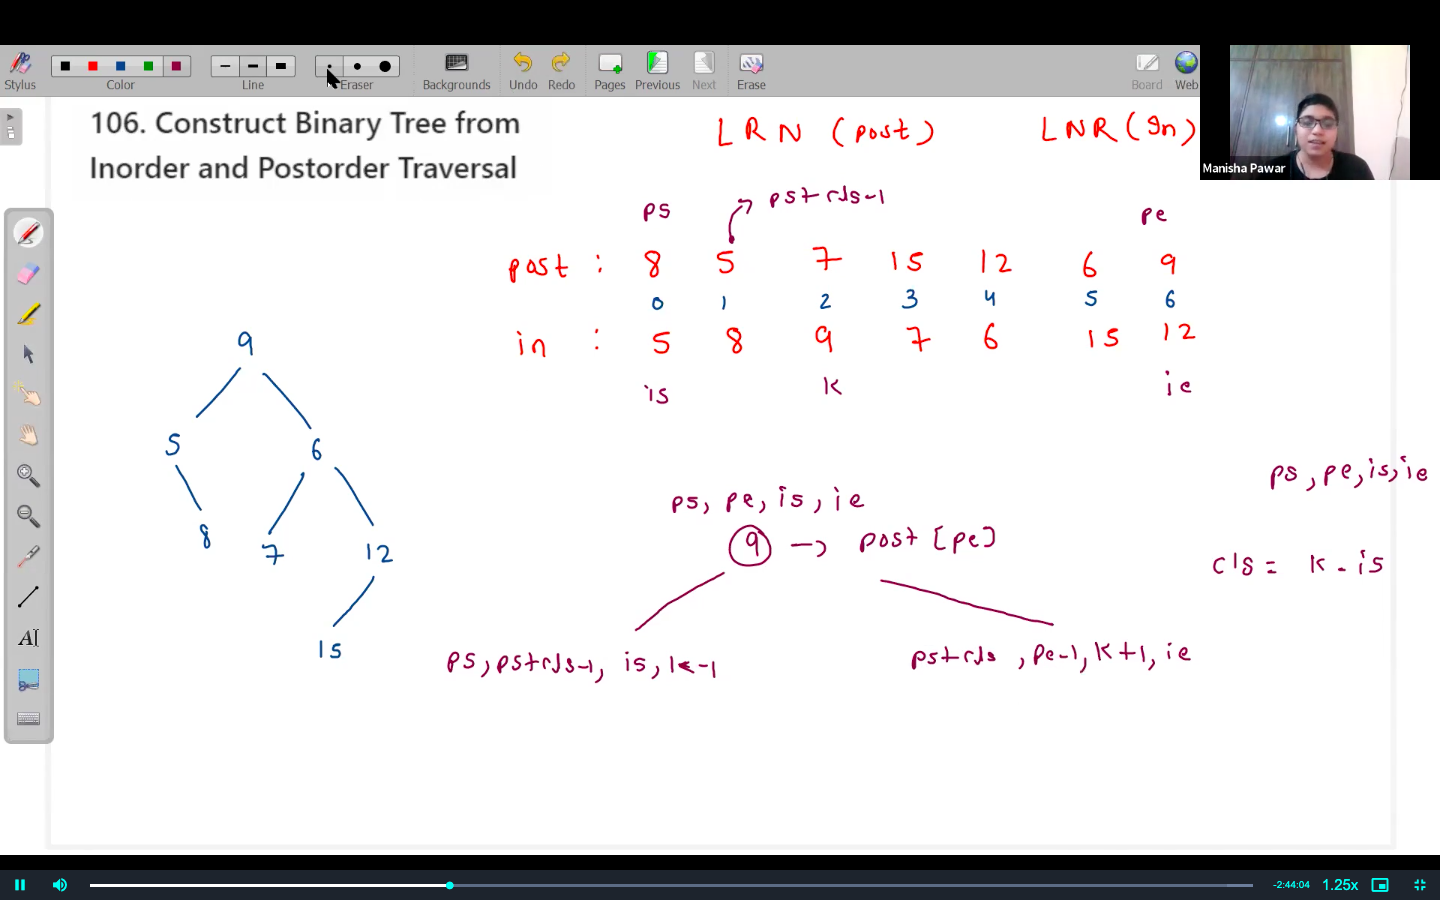 Stylus
Color
Line
Eraser
Backgrounds
Undo
Redo
Pages
Previous
Next
Erase
Board
Web
Manisha Pawar
106. Construct Binary Tree from
Inorder and Postorder Traversal
LRN (post)
LNR (In)
ps
ps+cls-1
pe
post : 8 5 7 15 12 6 9
0 1 2 3 4 5 6
in : 5 8 9 7 6 15 12
is k ie
9
5 6
8 7 12
15
ps, pe, is, ie
9 → post [pe]
ps, ps+cls-1, is, k-1
ps+cls , pe-1, k+1, ie
ps, pe, is, ie
cls = k - is
AI
-2:44:04
1.25x